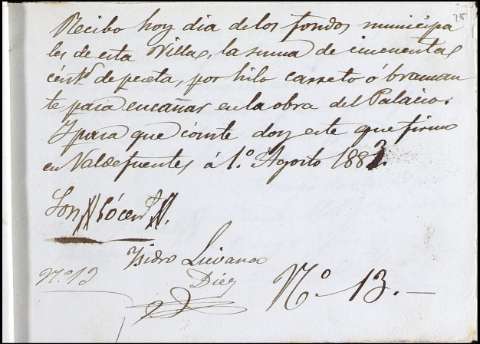 Recibo hoy dia de los fondos municipa
les de esta Villa, la suma de cincuenta
cént.s de peseta, por hilo carreto ó braman
te para encañar en la obra del Palacio.
Y para que conste doy este que firmo
en Valdefuentes á 1.º Agosto 1883.
Son 50 cent.s
Ysidro Lievana
Diez
N.º 13
N.º 13.—